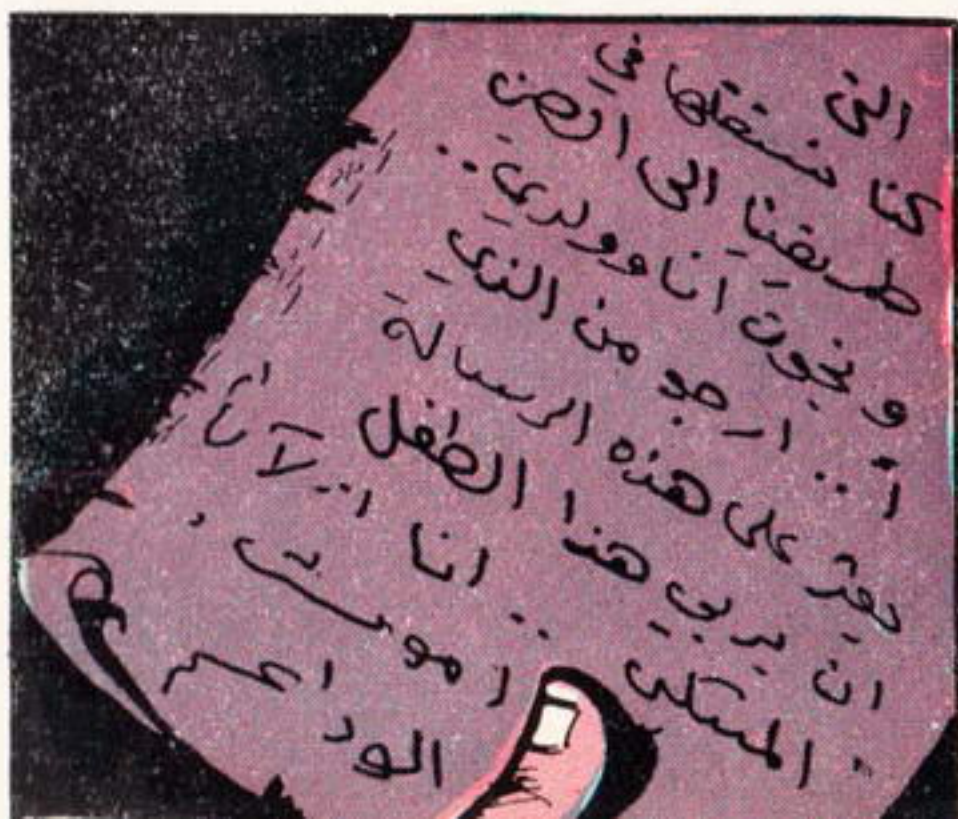 التي
كنا نستقلها في
طريقنا الى الصين
و نجوت انا وولدي ..
أ .. ارجو من الذي
يعثر على هذه الرسالة
ان يربي هذا الطفل
المسكين .. انا الآن
اموت .
الوداع